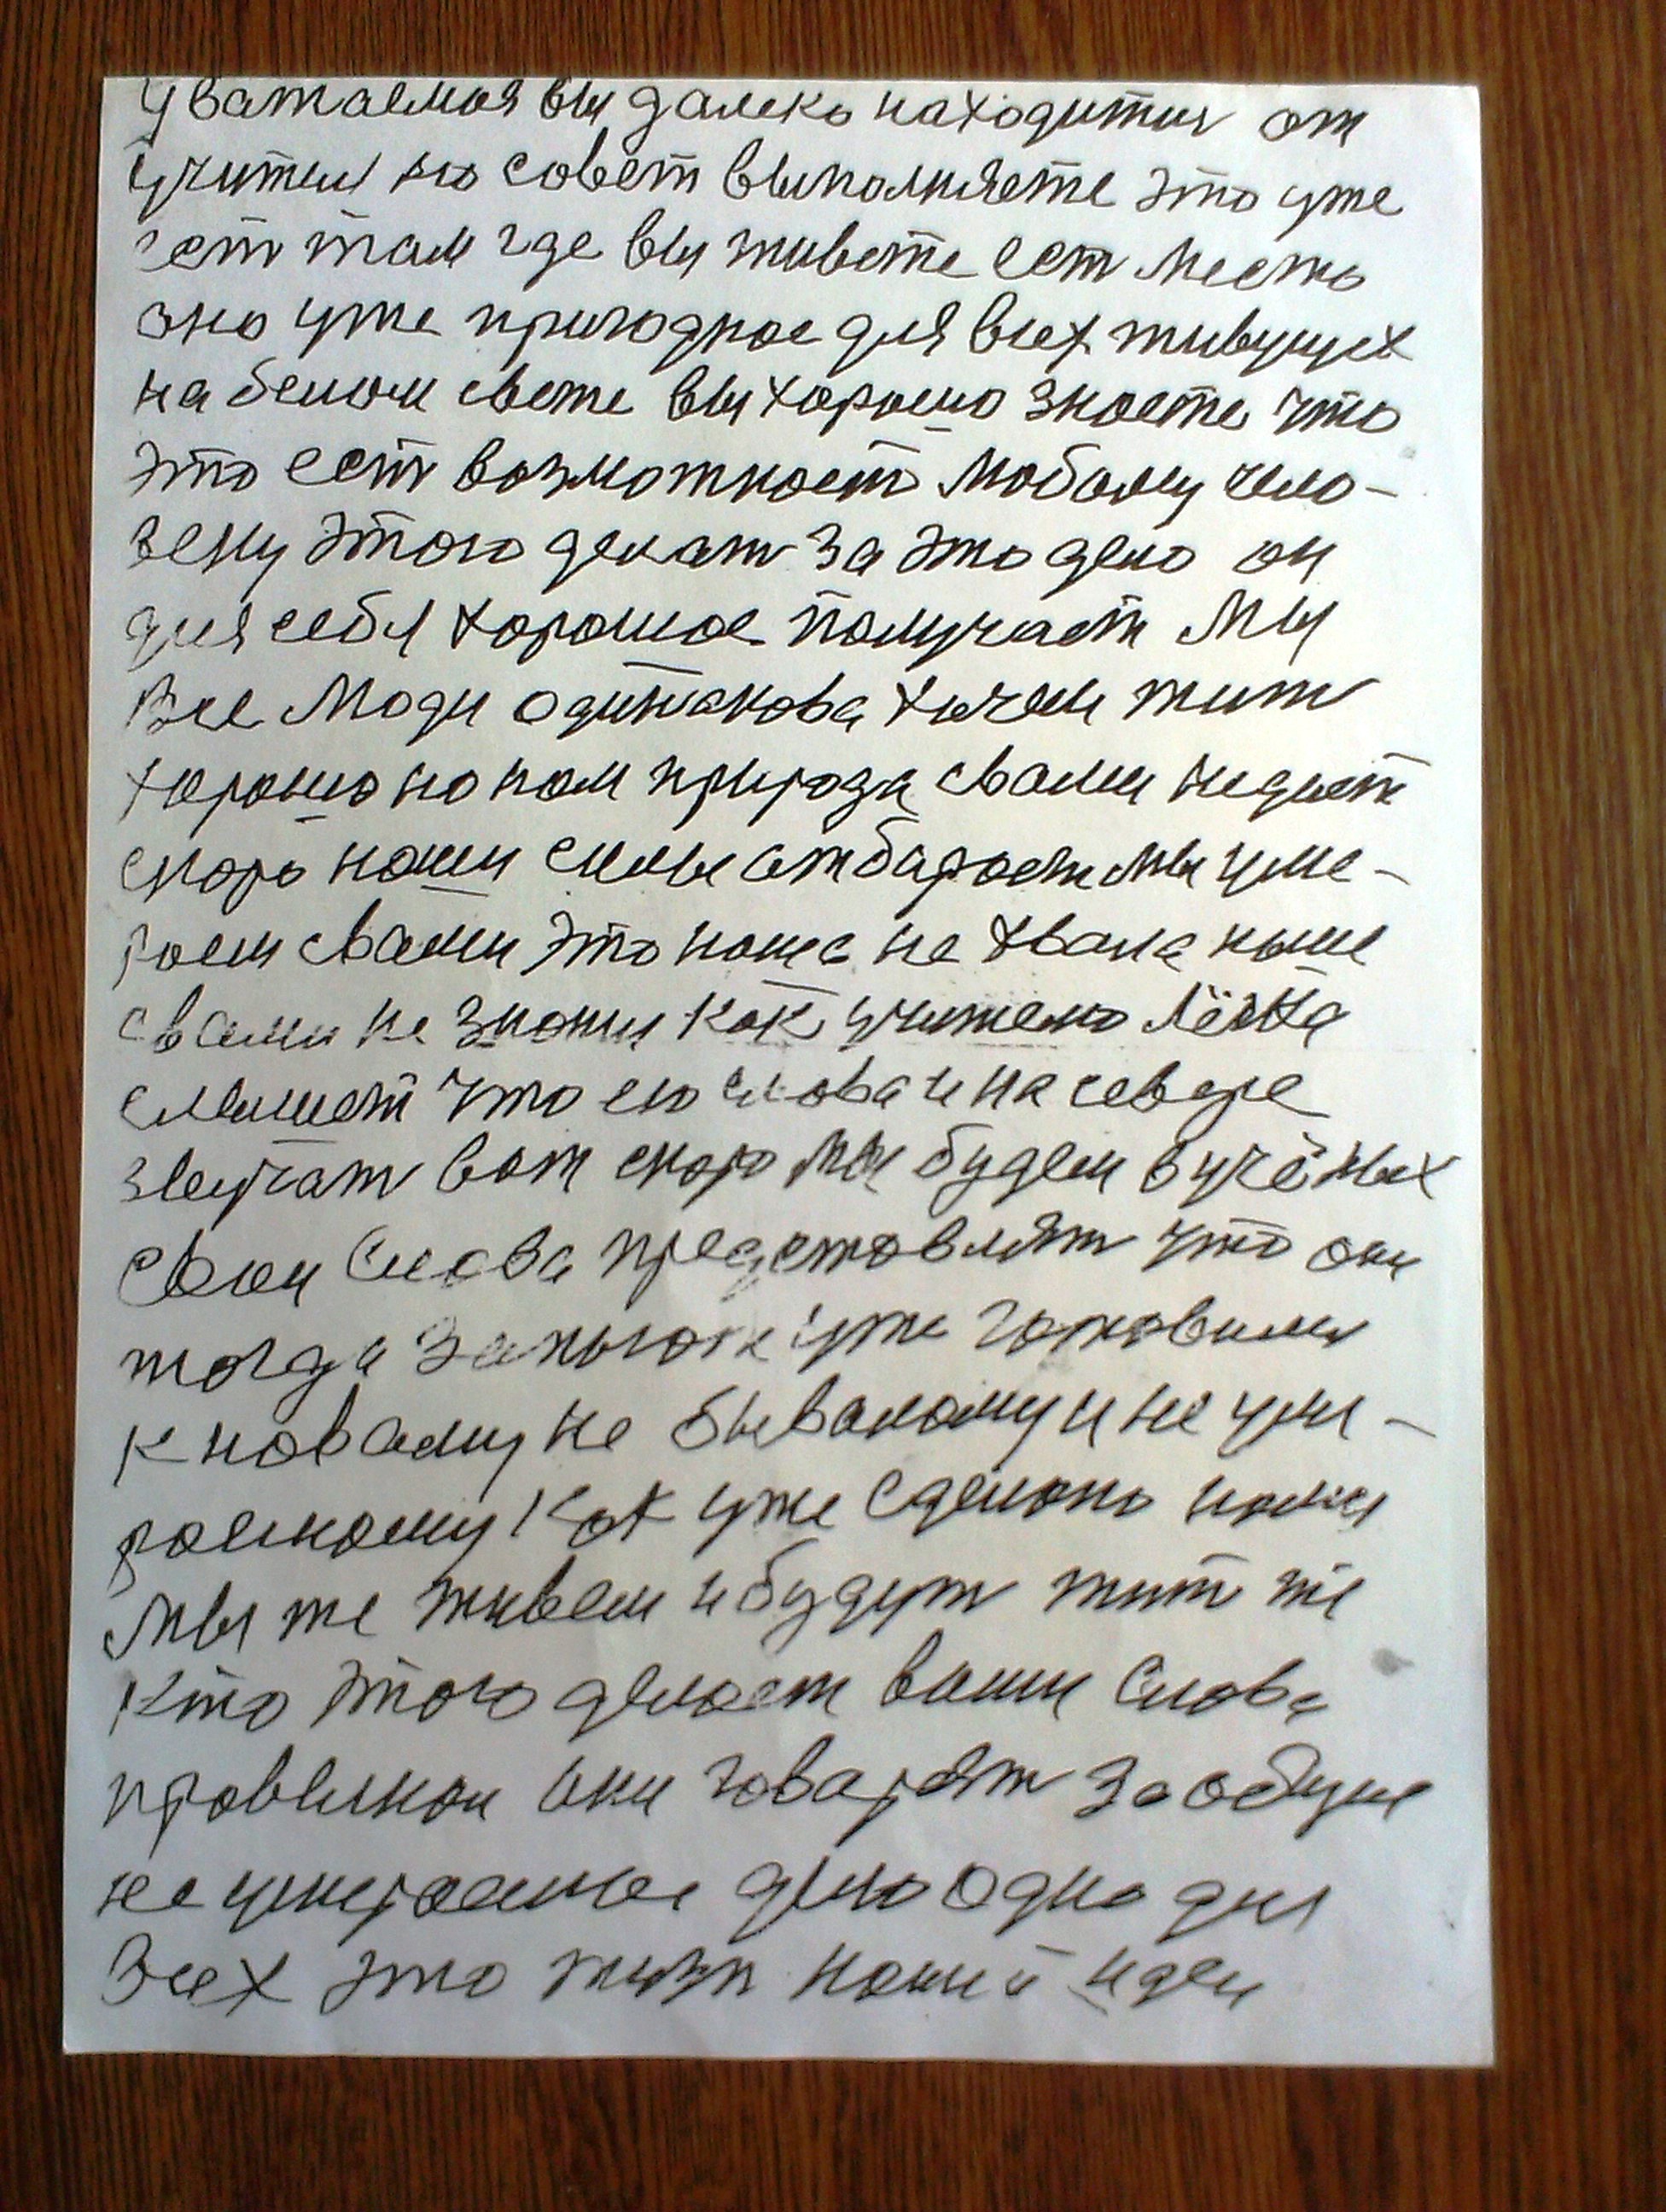 Уважаемая вы далеко находитися от
учителя но совет выполняете это уже
ест там где вы живете ест место
оно уже пригодное для всех живущих
на белом свете вы хорошо знаете что
это ест возможност любому чело-
веку этого делат за это дело он
для себя хорошое получает Мы
Все люди одинакова хочем жит
хорошо но нам природа свами недает
скоро наши силы отбарает мы уме-
раем свами это наша не хвала
свами не знания как учителю лёгка
слышет что его слова и на севере
звучат вот скоро мы будем в учёных
свои слова представлят что они
тогда уже готовился
к новаму не бывалому и не уми-
раемому как уже сделано нами
мы же живем и будут жит те
кто этого делает ваши слова
правельнои они говарят за общие
не умераемое дело одно для
Всех это жизн нашей идеи